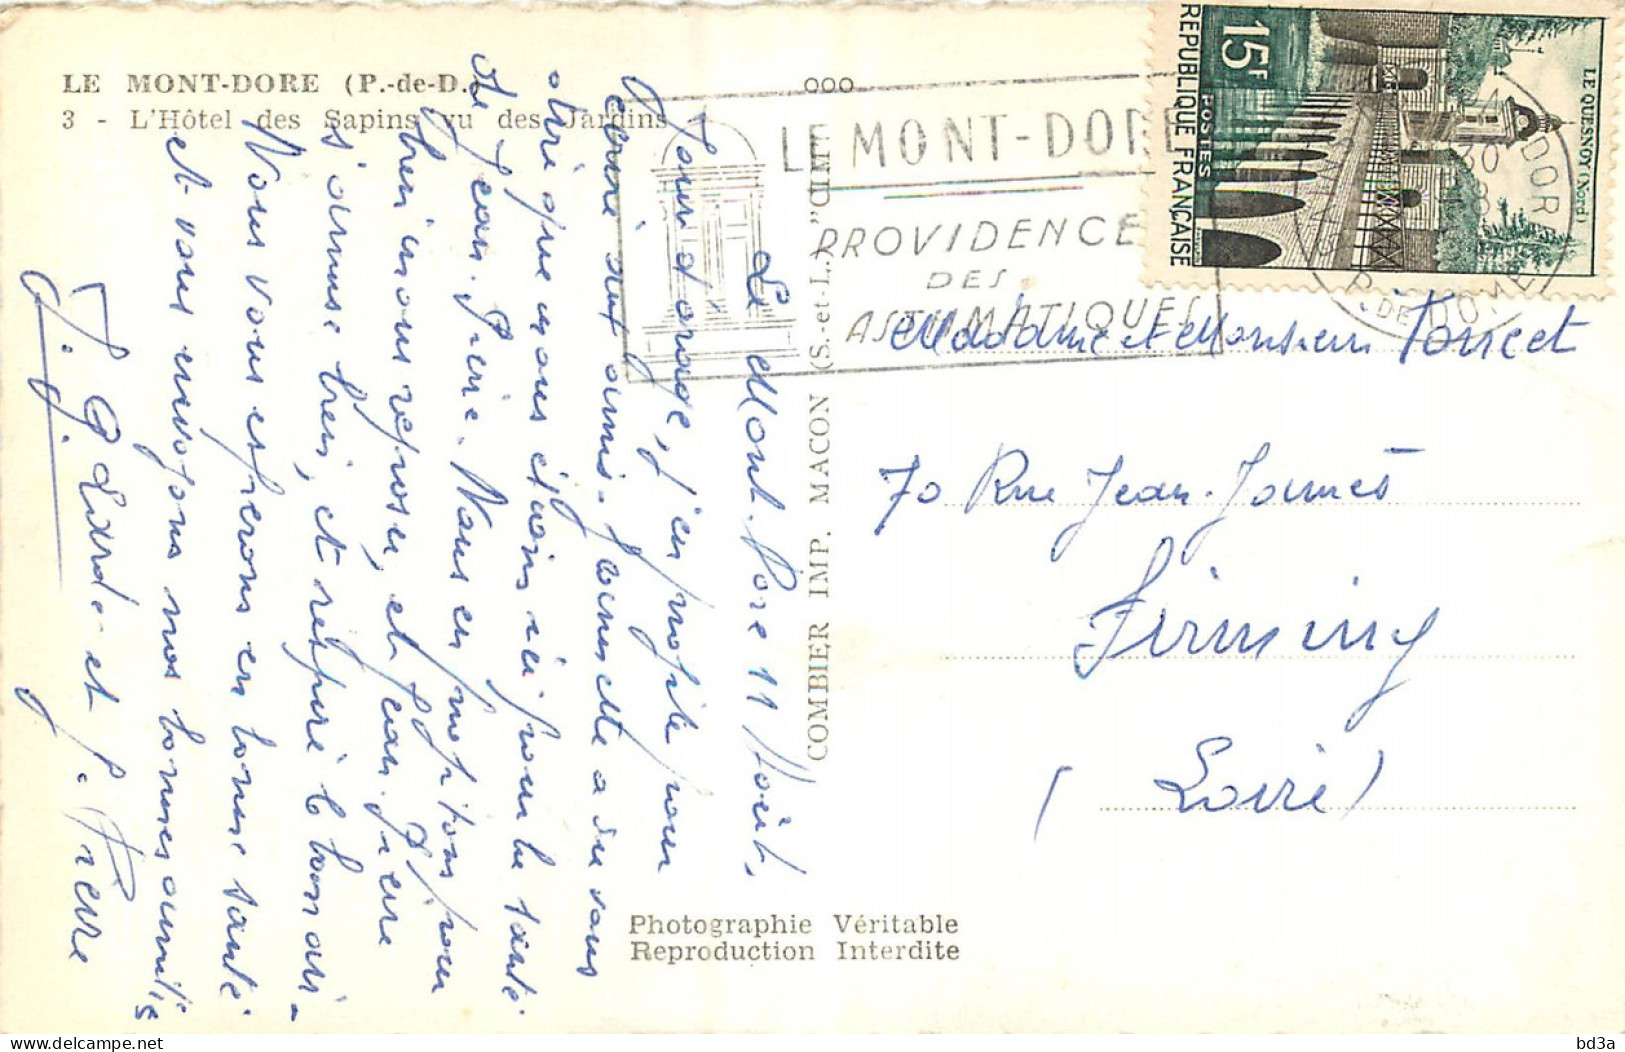 LE MONT-DORE (P.-de-D.)
3 - L'Hôtel des Sapins vu des Jardins
Le Mont-Dore 11 Août,
Jour d'orage, j'en profite pour
écrire aux amis. Jeannette a du vous
dire que nous étions ici pour la santé
de Jean-Pierre. Nous en profitons pour
bien nous reposer, et Jean-Pierre
s'amuse bien, et respire le bon air.
Nous vous espérons en bonne santé
et vous envoyons nos bonnes amitiés
J. et J. Pierre
COMBIER IMP. MACON (S.-et-L.) "CIM"
Photographie Véritable
Reproduction Interdite
LE MONT-DORE
PROVIDENCE
DES
ASTHMATIQUES
15F
POSTES
REPUBLIQUE FRANÇAISE
LE QUESNOY (Nord)
P. DE DOME
Madame et Monsieur
70 Rue Jean-Jaurès
Firminy
(Loire)
bd3a